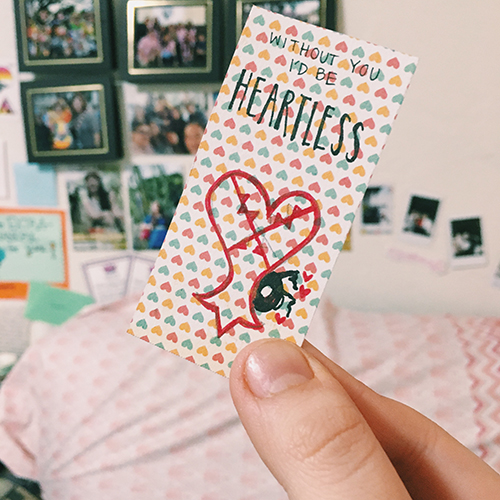 WITHOUT YOU
I'D BE
HEARTLESS